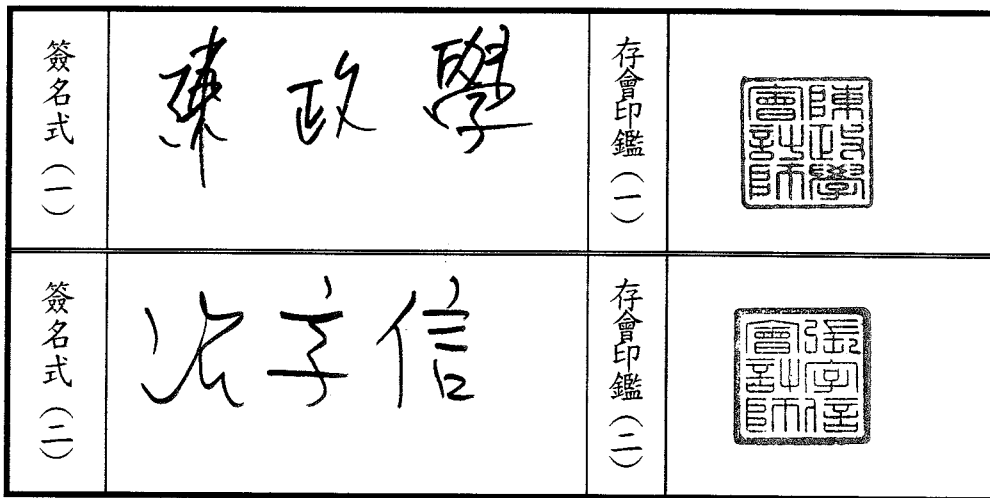 簽名式（一）
陳政學
存會印鑑（一）
陳政學會計師
簽名式（二）
張字信
存會印鑑（二）
張字信會計師